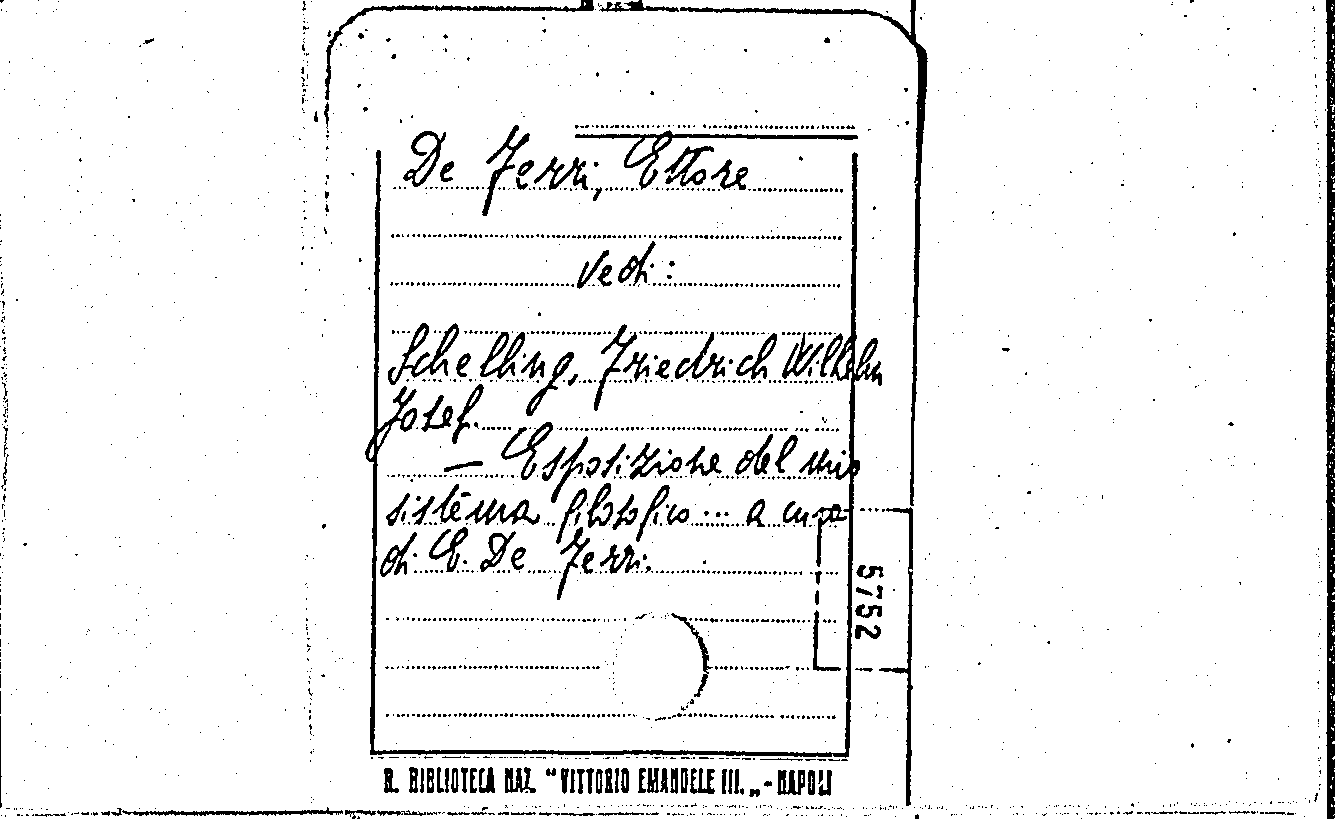 De Ferri, Ettore
Vedi:
Schelling, Friedrich Wilhelm
Josef.
— Esposizione del mio
sistema filosofico... a cura
di E. De Ferri.
5752
R. BIBLIOTECA NAZ. "VITTORIO EMANUELE III. „ - NAPOLI